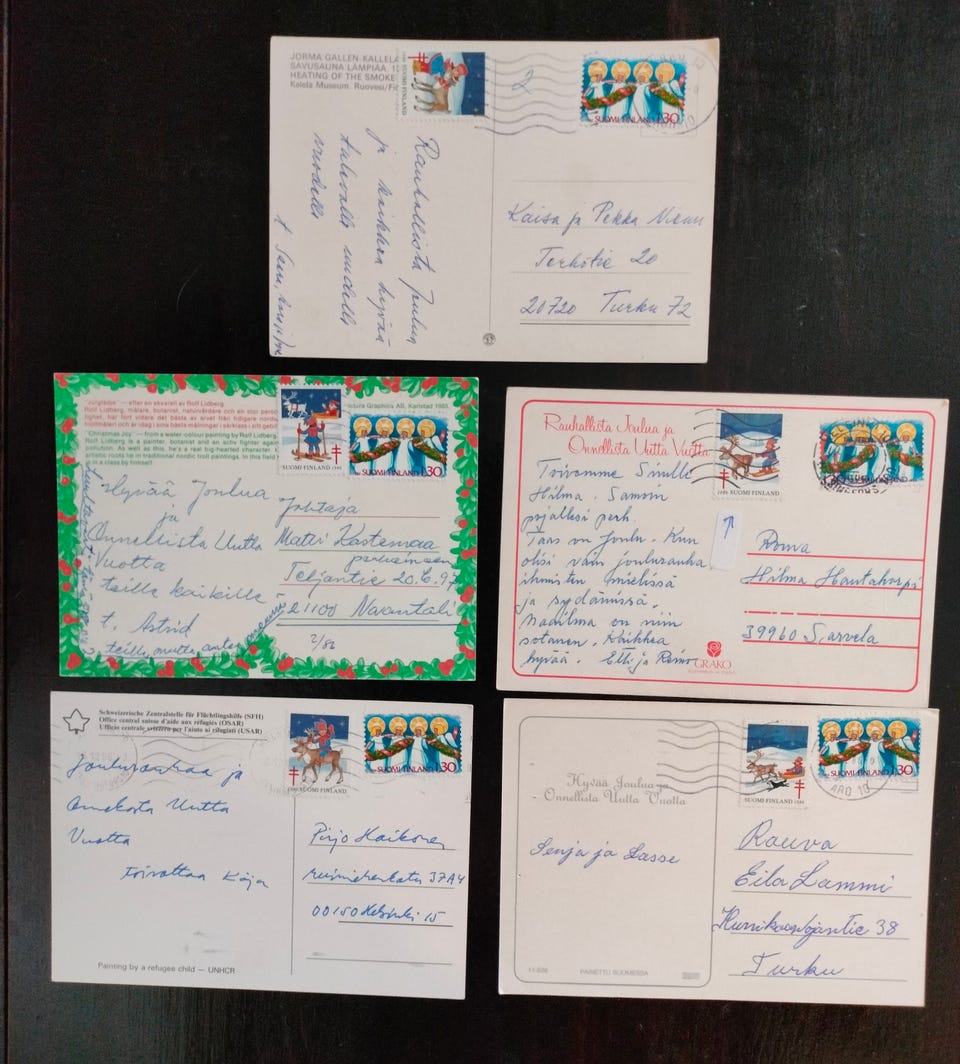 JORMA GALLEN-KALLELA
SAVUSAUNA LÄMPIÄÄ
HEATING OF THE SMOKE
Kalela Museum. Ruovesi/Fi
SUOMI FINLAND
2
SUOMI FINLAND 1.30
Rauhallista Joulua
ja kaikkea hyvää
tulevalle uudelle
vuodelle
t.
Kaisa ja Pekka
Terhotie 20
20720 Turku 72
"Julglädje" — efter en akvarell av Rolf Lidberg.
Rolf Lidberg, målare, botanist, naturvårdare och en stor pers
lighet, har fört vidare det bästa av arvet från tidigare
"Christmas Joy" — from a water-colour painting by Rolf Lidberg.
Rolf Lidberg is a painter, botanist and an activ fighter against
pollution. As well as this, he's a real big-hearted character.
artistic roots lie in traditional nordic troll paintings. In this field
in a class by himself.
ctura Graphics AB, Karlstad 1985.
SUOMI FINLAND 1986
SUOMI FINLAND 1.30
Hyvää Joulua
ja
Onnellista Uutta
Vuotta
teille kaikille
t. Astrid
Johtaja
Matti Kastemaa
perheineen
Teljäntie 20.C.97
21100 Naantali
2/86
Rauhallista Joulua ja
Onnellista Uutta Vuotta
1986 SUOMI FINLAND
Toivomme Sinulle
Hilma. Samoin
pojallesi perh.
Taas on Joulu. Kun
olisi vain joulurauha
ihmisten mielissä
ja sydämissä.
Maailma on niin
sotanen. Kaikkea
hyvää. Elli ja Reino
Rouva
Hilma Hautahorpi
39960 Sarvela
GRAKO
Schweizerische Zentralstelle für Flüchtlingshilfe (SFH)
Office central suisse d'aide aux réfugiés (OSAR)
Ufficio centrale svizzero per l'aiuto ai rifugiati (USAR)
1986 SUOMI FINLAND
SUOMI FINLAND 1.30
Joulurauhaa ja
Onnekasta Uutta
Vuotta
toivottaa Kaja
Pirjo Haikonen
Ruusulankatu 37A4
00150 Helsinki 15
Painting by a refugee child — UNHCR
SUOMI FINLAND 1986
SUOMI FINLAND 1.30
Hyvää Joulua ja
Onnellista Uutta Vuotta
Senja ja Lasse
Rouva
Eila Lammi
38
Turku
11-526
PAINETTU SUOMESSA